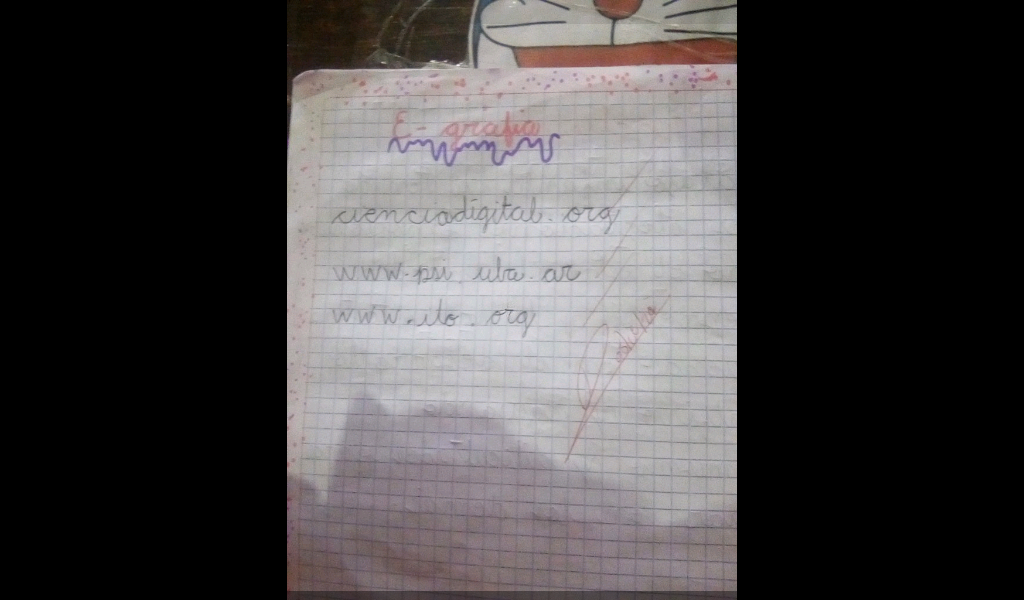 E- grafia
cienciadigital.org
www.psi.uba.ar
www.ilo.org